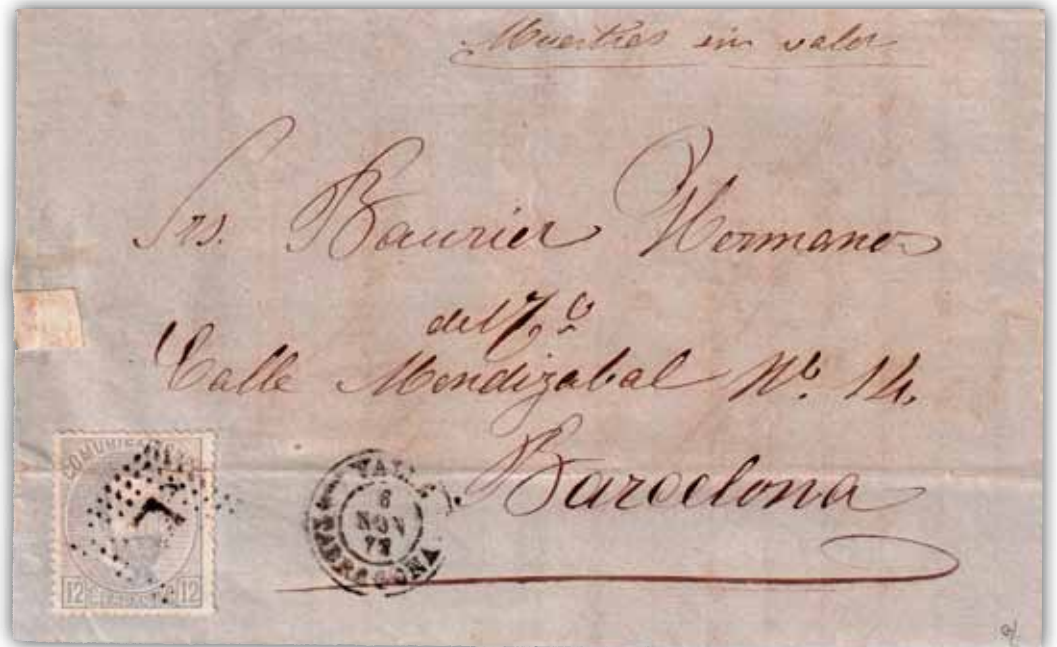 Muestras sin valor
Srs. Baurier Hermanos
del C.º
Calle Mendizabal Nº 14,
Barcelona
COMUNICACIONES
12 12
VALLS
6
NOV
72
TARRAGONA